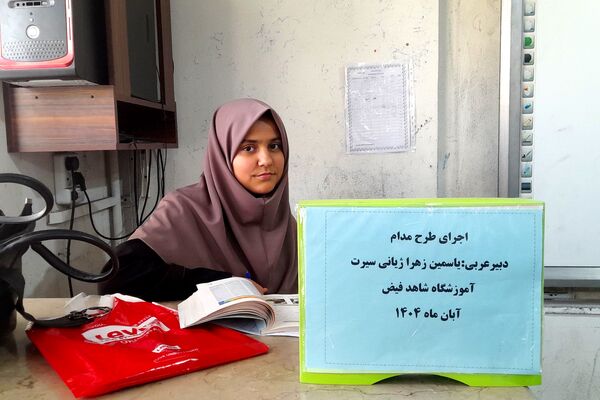 اجرای طرح مدام
دبیرعربی:یاسمین زهرا ژیانی سیرت
آموزشگاه شاهد فیض
آبان ماه ۱۴۰۴